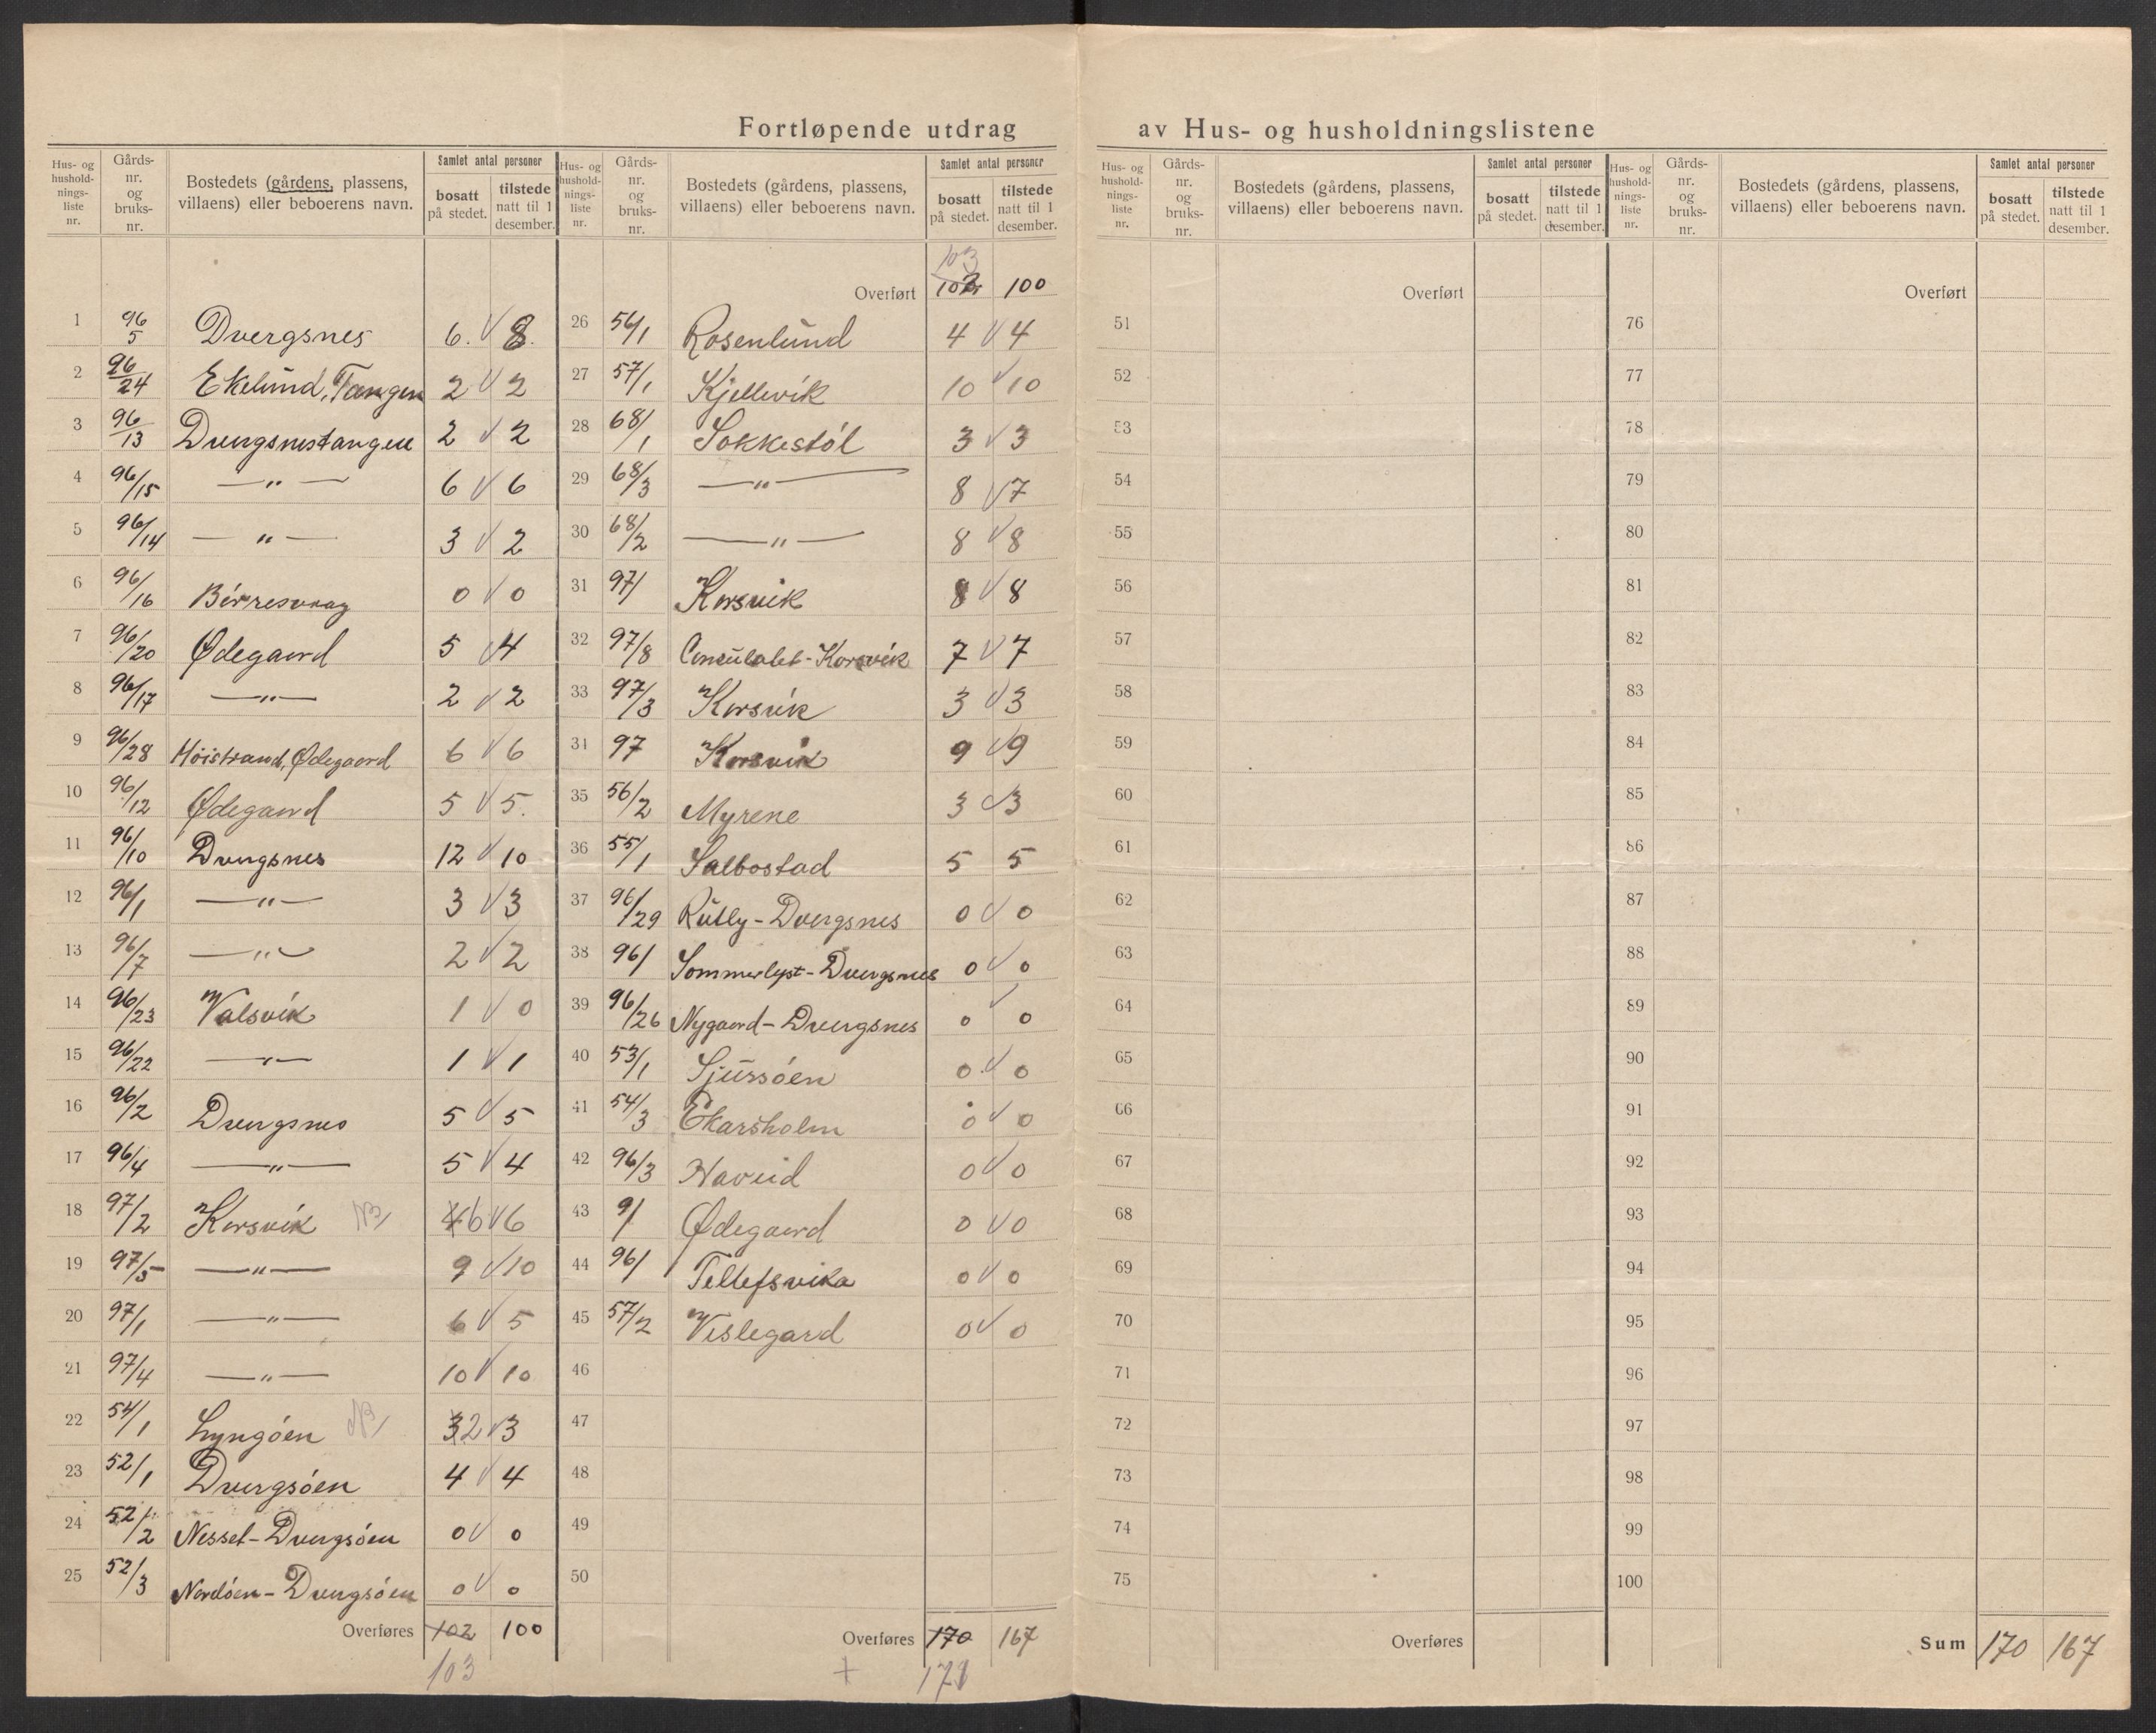 Fortløpende utdrag av Hus- og husholdningslistene
Hus- og hushold-nings-liste nr. Gårds-nr. og bruks-nr. Bostedets (gårdens, plassens, villaens) eller beboerens navn. Samlet antal personer bosatt på stedet. tilstede natt til 1 desember.
1 96/5 Dvergsnes 6. V 8.
2 96/24 Ekelund, Tangen 2 V 2
3 96/13 Dvergsnestangen 2 V 2
4 96/15 —„— 6 V 6
5 96/14 —„— 3 V 2
6 96/16 Börresvaag 0 V 0
7 96/20 Ødegaard 5 V 4
8 96/17 —„— 2 V 2
9 96/28 Høistrand, Ødegaard 6 V 6
10 96/12 Ødegaard 5 V 5.
11 96/10 Dvergsnes 12 V 10
12 96/1 —„— 3 V 3
13 96/7 —„— 2 V 2
14 96/23 Valsvik 1 V 0
15 96/22 —„— 1 V 1
16 96/2 Dvergsnes 5 V 5
17 96/4 —„— 5 V 4
18 97/2 Korsvik NB 4 6 V 6
19 97/5 —„— 9 V 10
20 97/1 —„— 6 V 5
21 97/4 —„— 10 V 10
22 54/1 Lyngöen NB 3 2 V 3
23 52/1 Dvergsöen 4 V 4
24 52/2 Nesset-Dvergsöen 0 V 0
25 52/3 Nordöen-Dvergsöen 0 V 0
Overføres 102 100
103
Hus- og hushold-nings-liste nr. Gårds-nr. og bruks-nr. Bostedets (gårdens, plassens, villaens) eller beboerens navn. Samlet antal personer bosatt på stedet. tilstede natt til 1 desember.
103
Overført 102 100
26 56/1 Rosenlund 4 V 4
27 57/1 Kjellevik 10 V 10
28 68/1 Sokkestöl 3 V 3
29 68/3 —„— 8 V 7
30 68/2 —„— 8 V 8
31 97/ Korsvik 8 V 8
32 97/8 Consulatet-Korsvik 7 V 7
33 97/3 Korsvik 3 V 3
34 97 Korsvik 9 V 9
35 56/2 Myrene 3 V 3
36 55/1 Salbostad 5 5
37 96/29 Rutly-Dvergsnes 0 V 0
38 96/ Sommerlyst-Dvergsnes 0 V 0
39 96/26 Nygaard-Dvergsnes 0 V 0
40 53/1 Sjursöen 0 V 0
41 54/3 Ekarsholm 0 V 0
42 96/3 Haveid 0 V 0
43 9/ Ødegaard 0 V 0
44 96/ Tellefsvika 0 V 0
45 57/2 Veslegard 0 V 0
46
47
48
49
50
Overføres 170 167
+ 171
Hus- og hushold-nings-liste nr. Gårds-nr. og bruks-nr. Bostedets (gårdens, plassens, villaens) eller beboerens navn. Samlet antal personer bosatt på stedet. tilstede natt til 1 desember.
Overført
51
52
53
54
55
56
57
58
59
60
61
62
63
64
65
66
67
68
69
70
71
72
73
74
75
Overføres
Hus- og hushold-nings-liste nr. Gårds-nr. og bruks-nr. Bostedets (gårdens, plassens, villaens) eller beboerens navn. Samlet antal personer bosatt på stedet. tilstede natt til 1 desember.
Overført
76
77
78
79
80
81
82
83
84
85
86
87
88
89
90
91
92
93
94
95
96
97
98
99
100
Sum 170 167